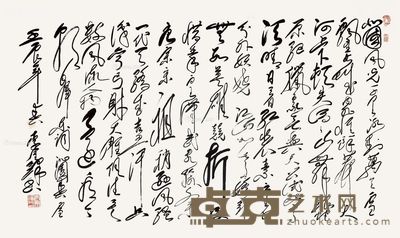 北国风光千里冰封万里雪
飘望长城内外惟余莽莽大
河上下顿失滔滔山舞银蛇
原驰蜡象欲与天公试比高
须晴日看红装素裹
分外妖娆江山如此多娇引
无数英雄竞折腰
惜秦皇汉武略输文采
唐宗宋祖稍逊风骚
一代天骄成吉思汗只
识弯弓射大雕俱往矣
数风流人物还看今
朝
壬辰年
卓克艺术网